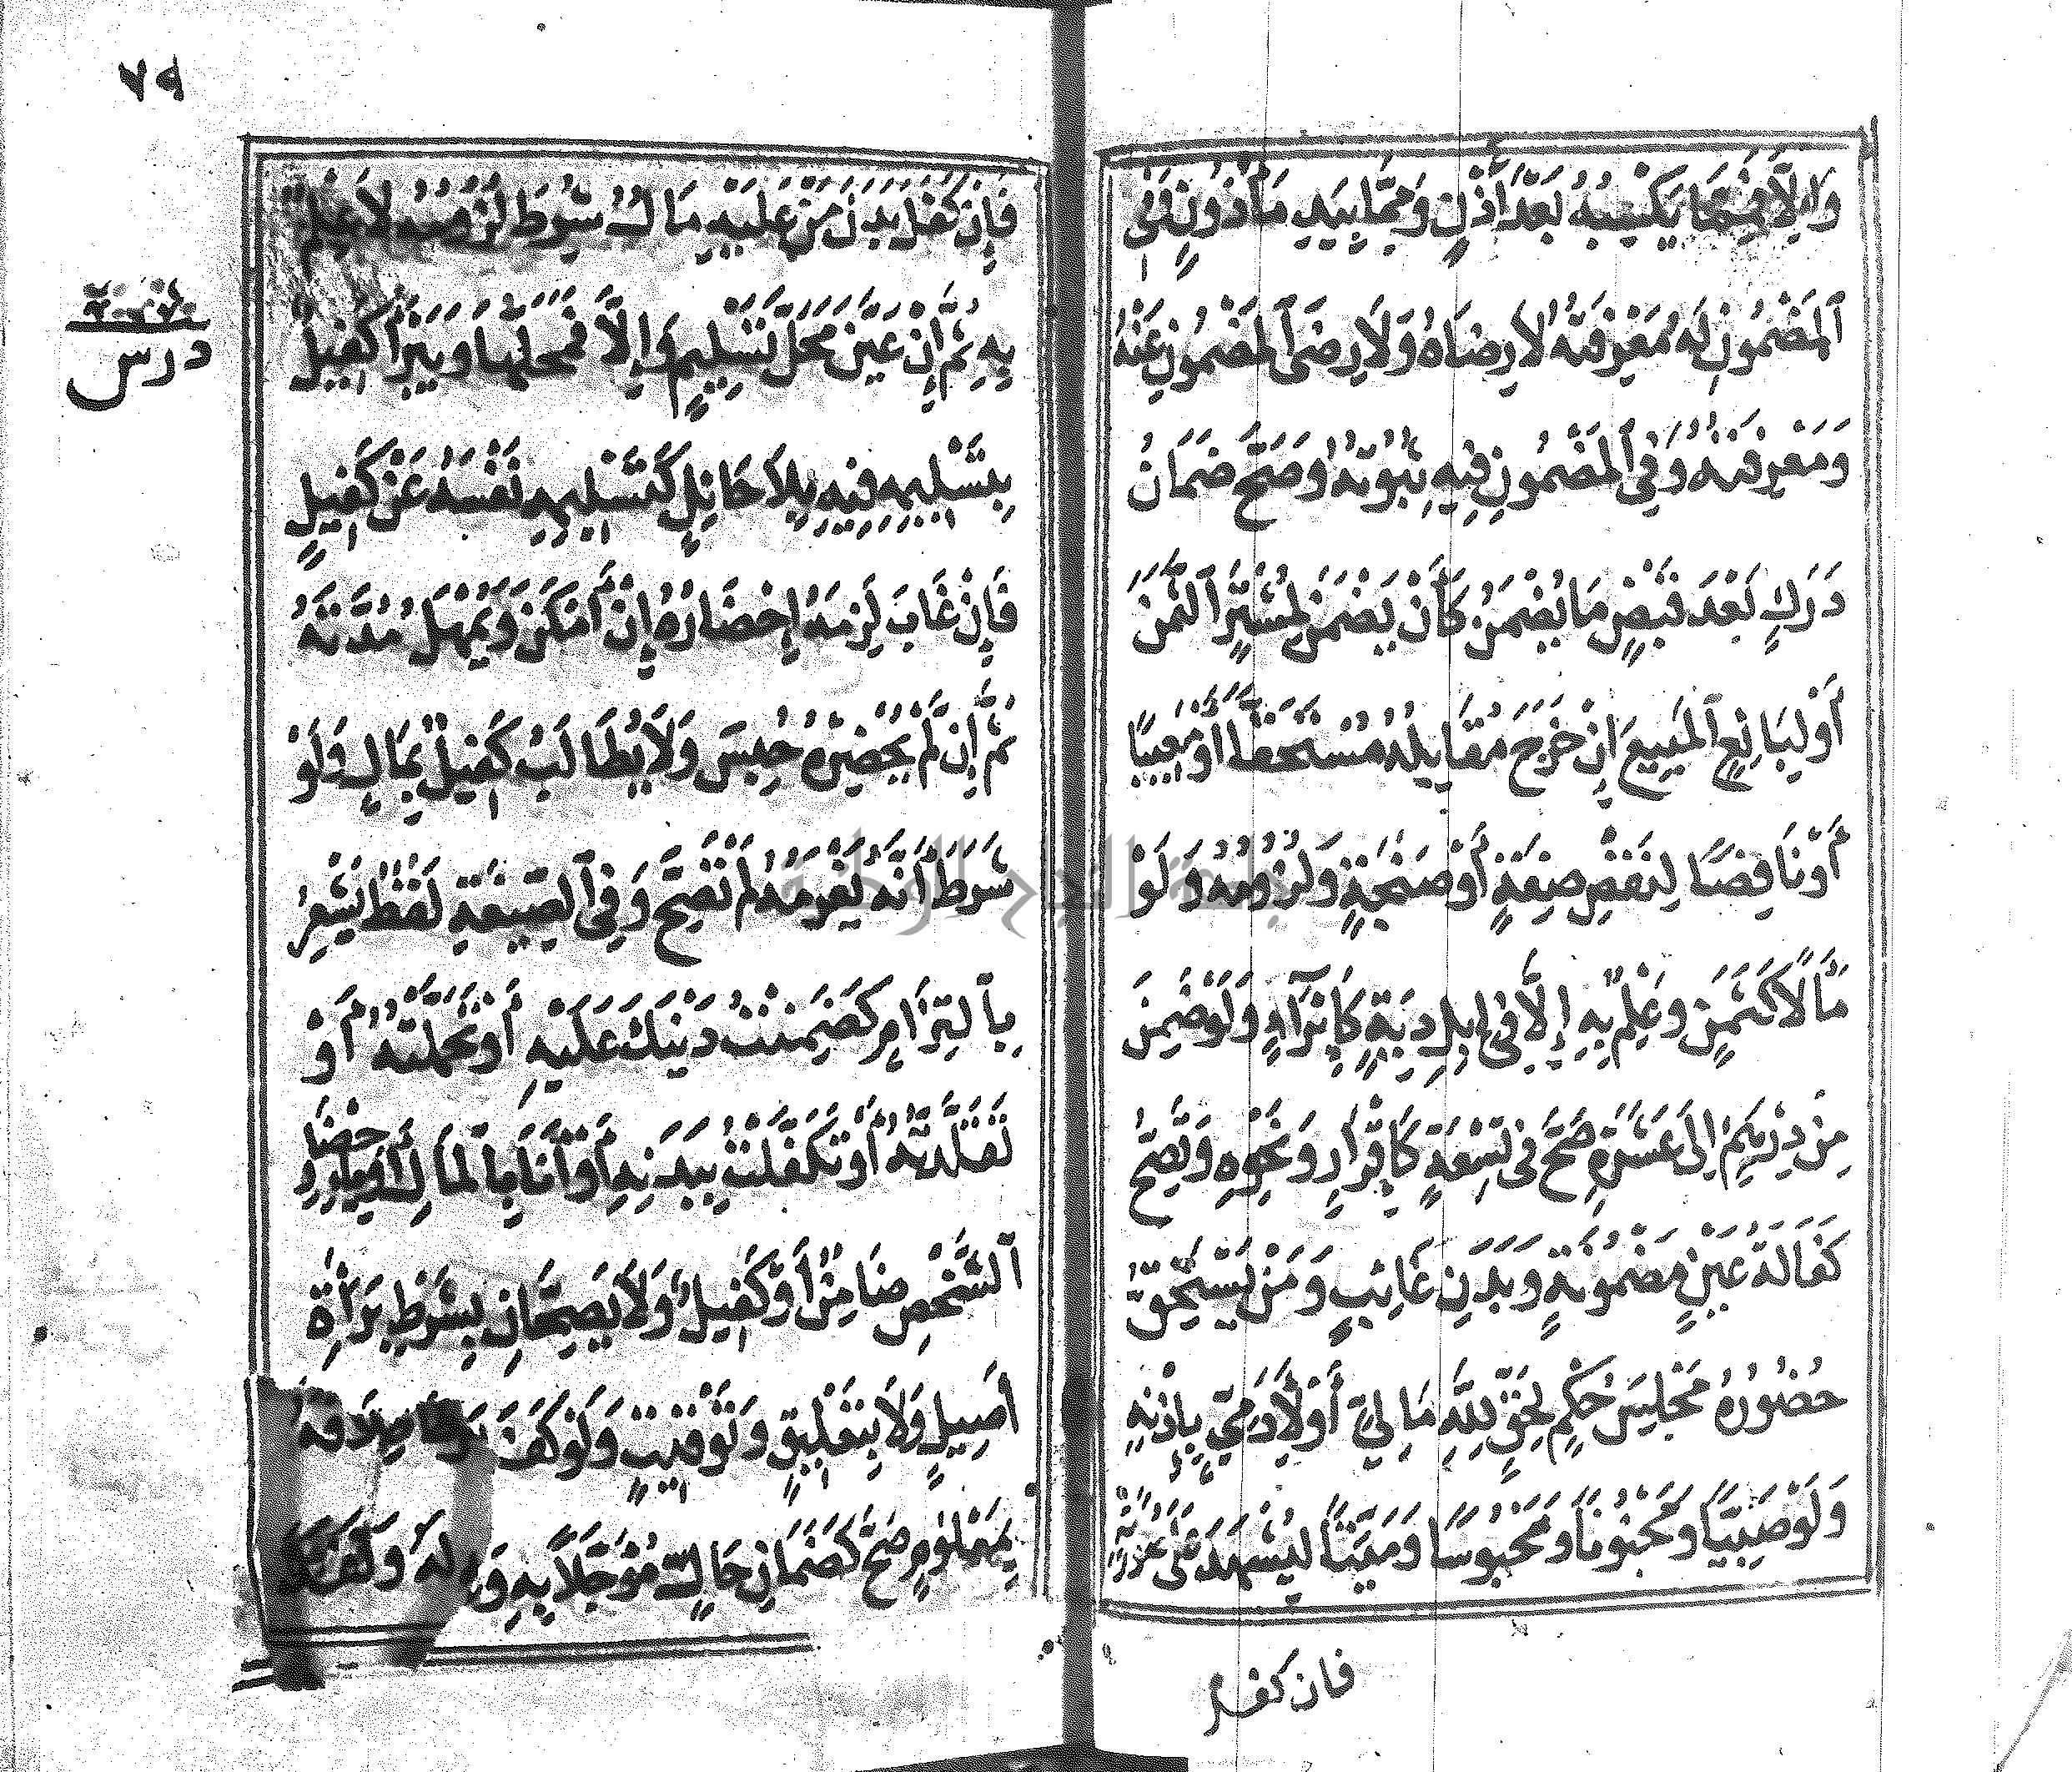 وَإِلَّا فَمِمَّا يَكْسِبُهُ بَعْدَ أَذْنٍ وَمِمَّا بِيَدِ مَأْذُونٍ وَفِي
ٱلْمَضْمُونِ لَهُ مَعْرِفَتُهُ لَا رِضَاهُ وَلَا رِضَى ٱلْمَضْمُونِ عَنْهُ
وَمَعْرِفَتُهُ وَفِي ٱلْمَضْمُونِ فِيهِ ثُبُوتُهُ وَصَحَّ ضَمَانُ
دَرَكٍ بَعْدَ قَبْضِ مَا يُضْمَنُ كَأَنْ يَضْمَنَ لِمُشْتَرٍ ٱلثَّمَنَ
أَوْ لِبَائِعٍ ٱلْمَبِيعَ إِنْ خَرَجَ مُقَابِلُهُ مُسْتَحَقًّا أَوْ مَعِيبًا
أَوْ نَاقِصًا لِنَقْصِ صِفَةٍ أَوْ صَنْجَةٍ وَلُزُومُهُ وَلَوْ
مَآلًا كَثَمَنٍ وَعِلْمٌ بِهِ إِلَّا فِي إِبِلِ دِيَةٍ كَإِبْرَآءٍ وَلَوْ ضَمِنَ
مِنْ دِرْهَمٍ إِلَى عَشَرَةٍ صَحَّ فِي تِسْعَةٍ كَإِقْرَارٍ وَنَحْوِهِ وَتَصِحُّ
كَفَالَةُ عَيْنٍ مَضْمُونَةٍ وَبَدَنِ غَائِبٍ وَمَنْ يَسْتَحِقُّ
حُضُورُهُ مَجْلِسَ حُكْمٍ لِحَقٍّ لِلّٰهِ مَالِيٍّ أَوْ لِآدَمِيٍّ بِإِذْنِهِ
وَلَوْ صَبِيًّا وَمَجْنُونًا وَمَحْبُوسًا وَمَيِّتًا لِيُشْهَدَ عَلَى صُورَتِهِ
فان كفل
٧٩
فَإِنْ كَفَلَ بَدَنَ مَنْ عَلَيْهِ مَالٌ شُرِطَ لُزُومُهُ لَا عِلْمٌ
بِهِ ثُمَّ إِنْ عَيَّنَ مَحَلَّ تَسْلِيمٍ وَإِلَّا فَمَحَلُّهَا وَيَبْرَأُ كَفِيلٌ
بِتَسْلِيمِهِ فِيهِ بِلَا حَائِلٍ كَتَسْلِيمِهِ نَفْسَهُ عَنْ كَفِيلٍ
فَإِنْ غَابَ لَزِمَهُ إِحْضَارُهُ إِنْ أَمْكَنَ وَيُمْهَلُ مُدَّتَهُ
ثُمَّ إِنْ لَمْ يُحْضِرْهُ حُبِسَ وَلَا يُطَالَبُ كَفِيلٌ بِمَالٍ وَلَوْ
شَرَطَ أَنَّهُ يَغْرَمُهُ لَمْ تَصِحَّ وَفِي ٱلصِّيغَةِ لَفْظٌ يُشْعِرُ
بِٱلْتِزَامٍ كَضَمِنْتُ دَيْنَكَ عَلَيْهِ أَوْ تَحَمَّلْتُهُ أَوْ
تَقَلَّدْتُهُ أَوْ تَكَفَّلْتُ بِبَدَنِهِ أَوْ أَنَا بِٱلْمَالِ أَوْ بِإِحْضَارِ
ٱلشَّخْصِ ضَامِنٌ أَوْ كَفِيلٌ وَلَا يَصِحَّانِ بِشَرْطِ بَرَاءَةِ
أَصِيلٍ وَلَا بِتَعْلِيقٍ وَتَوْقِيتٍ وَلَوْ كَفَلَ
بِمَعْلُومٍ صَحَّ كَضَمَانِ حَالٍّ مُؤَجَّلًا بِهِ
درس